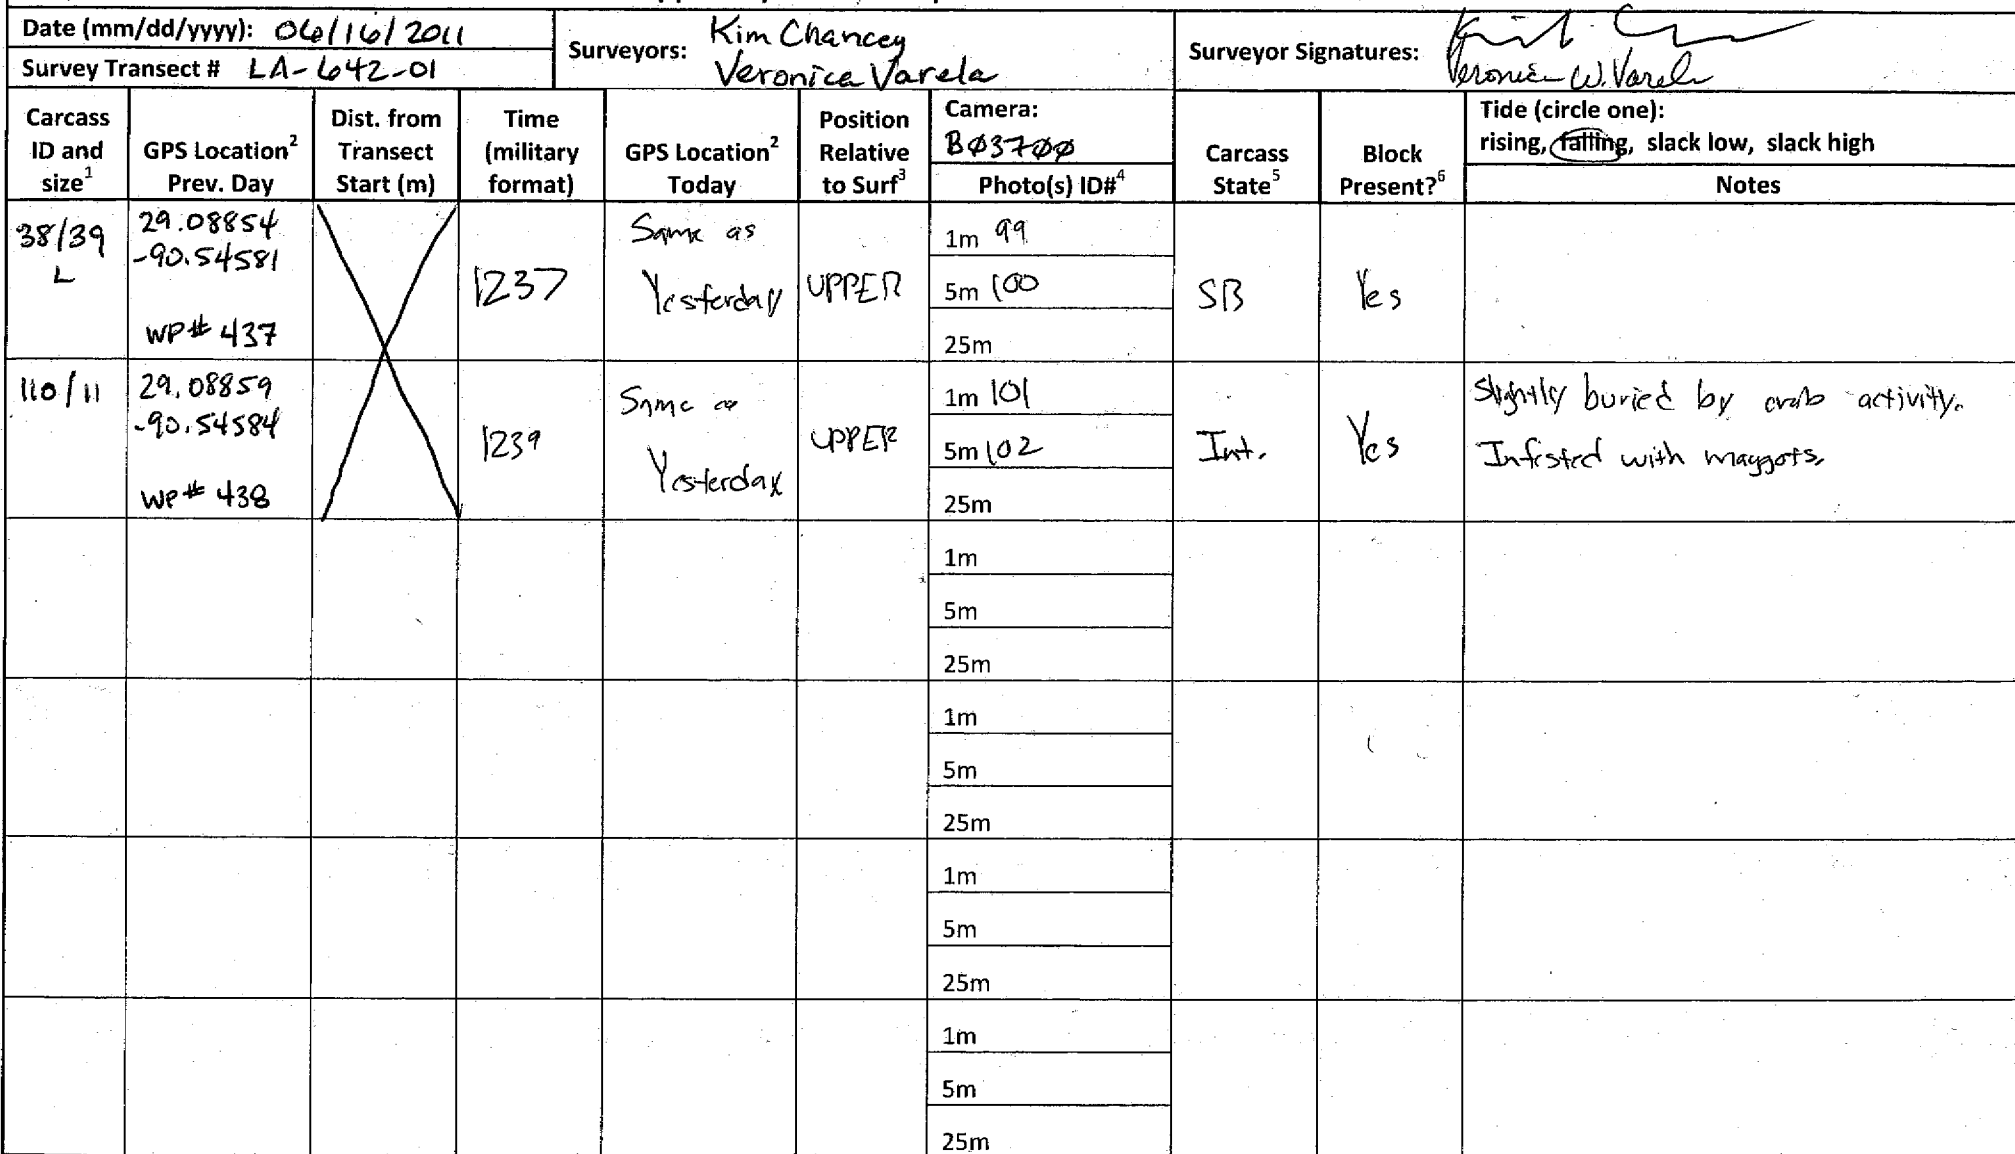 Date (mm/dd/yyyy): 06/16/2011
Survey Transect # LA-642-01
Surveyors: Kim Chancey
Veronica Varela
Surveyor Signatures:
Veronica W. Varela
Carcass ID and size1
GPS Location2 Prev. Day
Dist. from Transect Start (m)
Time (military format)
GPS Location2 Today
Position Relative to Surf3
Camera:
BØ37ØØ
Photo(s) ID#4
Carcass State5
Block Present?6
Tide (circle one):
rising, falling, slack low, slack high
Notes
38/39
L
29.08854
-90.54581
WP# 437
1237
Same as
Yesterday
UPPER
1m 99
5m 100
25m
SB
Yes
110/11
29.08859
-90.54584
WP# 438
1239
Same as
Yesterday
UPPER
1m 101
5m 102
25m
Int.
Yes
Slightly buried by crab activity.
Infested with maggots.
1m
5m
25m
1m
5m
25m
1m
5m
25m
1m
5m
25m